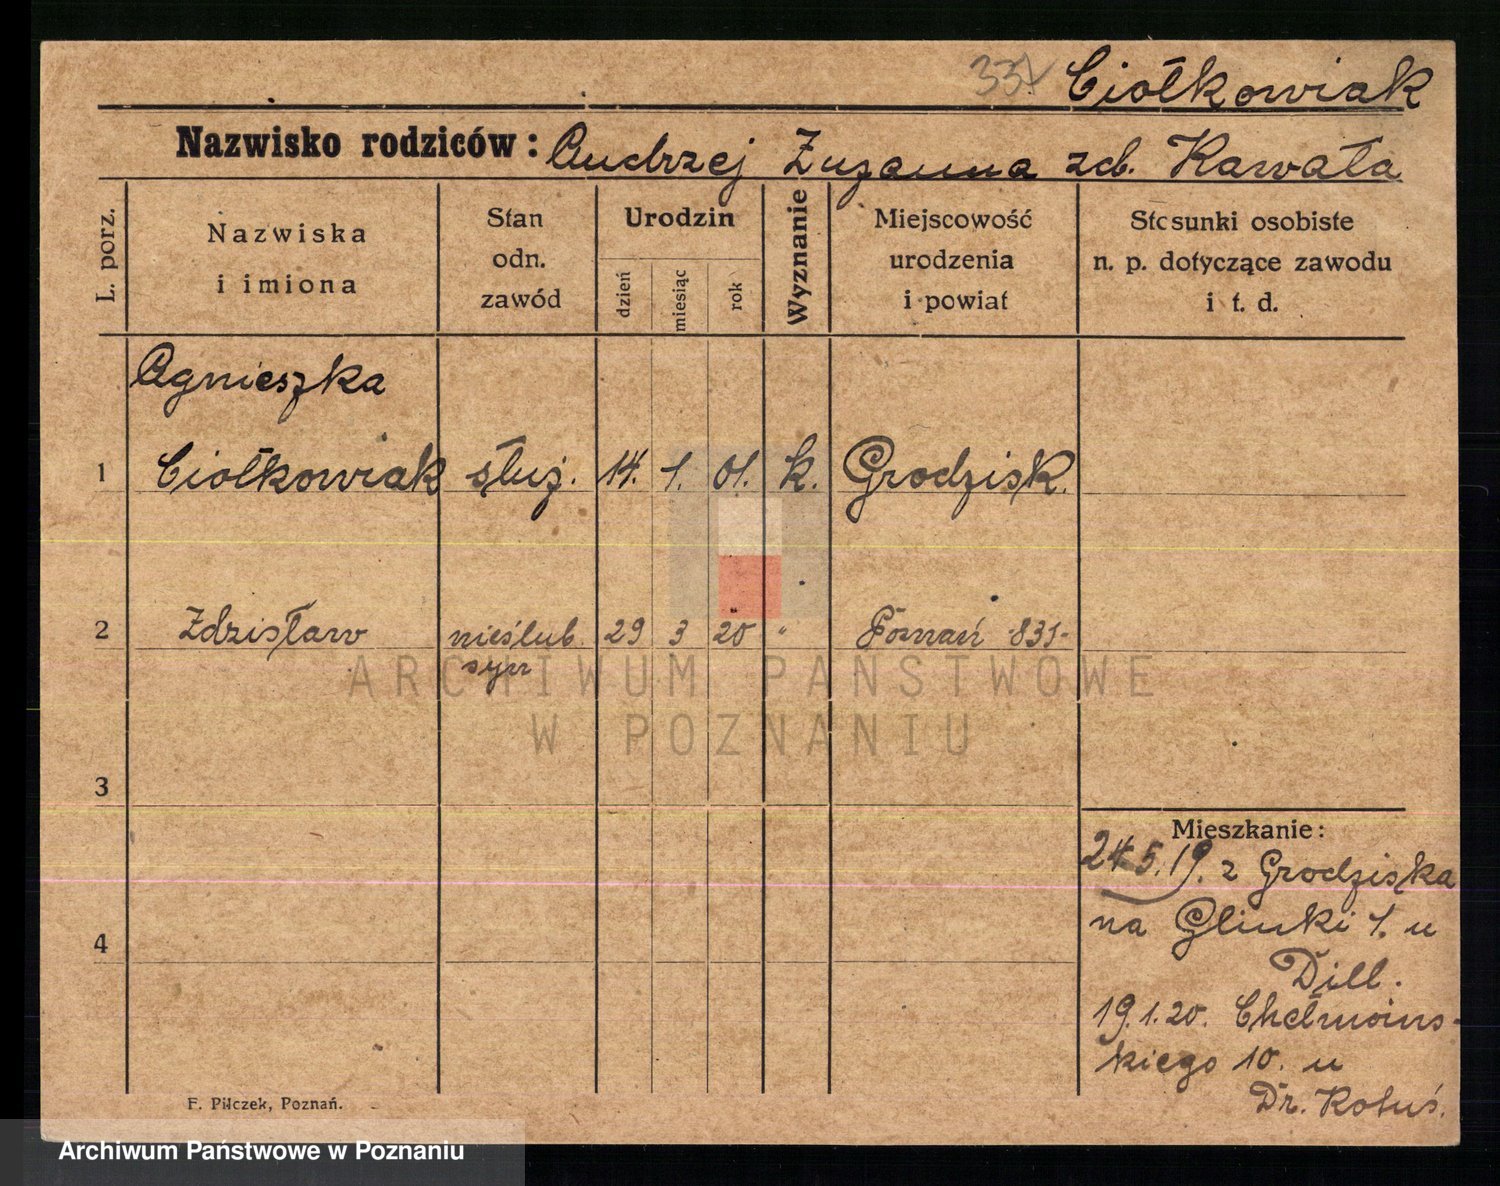 337 Ciołkowiak
Nazwisko rodziców: Andrzej Zuzanna zd. Kawała
L. porz.
Nazwiska
i imiona
Stan
odn.
zawód
Urodzin
dzień
miesiąc
rok
Wyznanie
Miejscowość
urodzenia
i powiat
Stosunki osobiste
n. p. dotyczące zawodu
i t. d.
Agnieszka
1 Ciołkowiak służ. 14. 1. 01. k. Grodzisk.
2 Zdzisław nieślub. 29 3 20 " Poznań 831-
syn
ARCHIWUM PAŃSTWOWE
W POZNANIU
3
Mieszkanie:
24.5.19. z Grodziska
na Glinki 1. u
4
Dill.
19.1.20. Chełmoińs-
kiego 10. u
Dr. Kotuś.
F. Pilczek, Poznań.
Archiwum Państwowe w Poznaniu